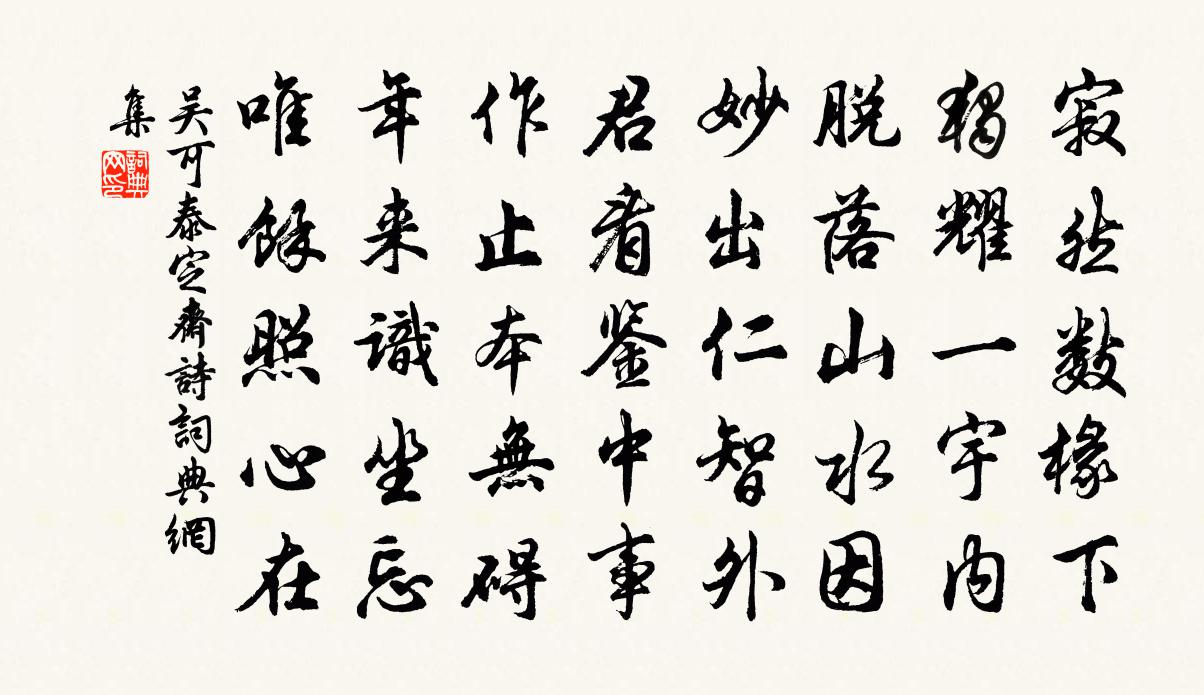 寂然數椽下
獨耀一宇内
脫落山水因
妙出仁智外
君看鉴中事
作止本無礙
年来識坐忘
唯餘照心在
吴可泰定齋詩詞典網
集
詞典網印